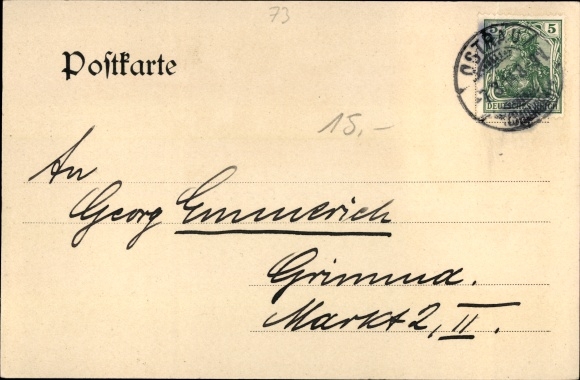 73
5
OSTRAU
Postkarte
15,-
An
Georg Emmerich
Grimma.
Markt 2, II.